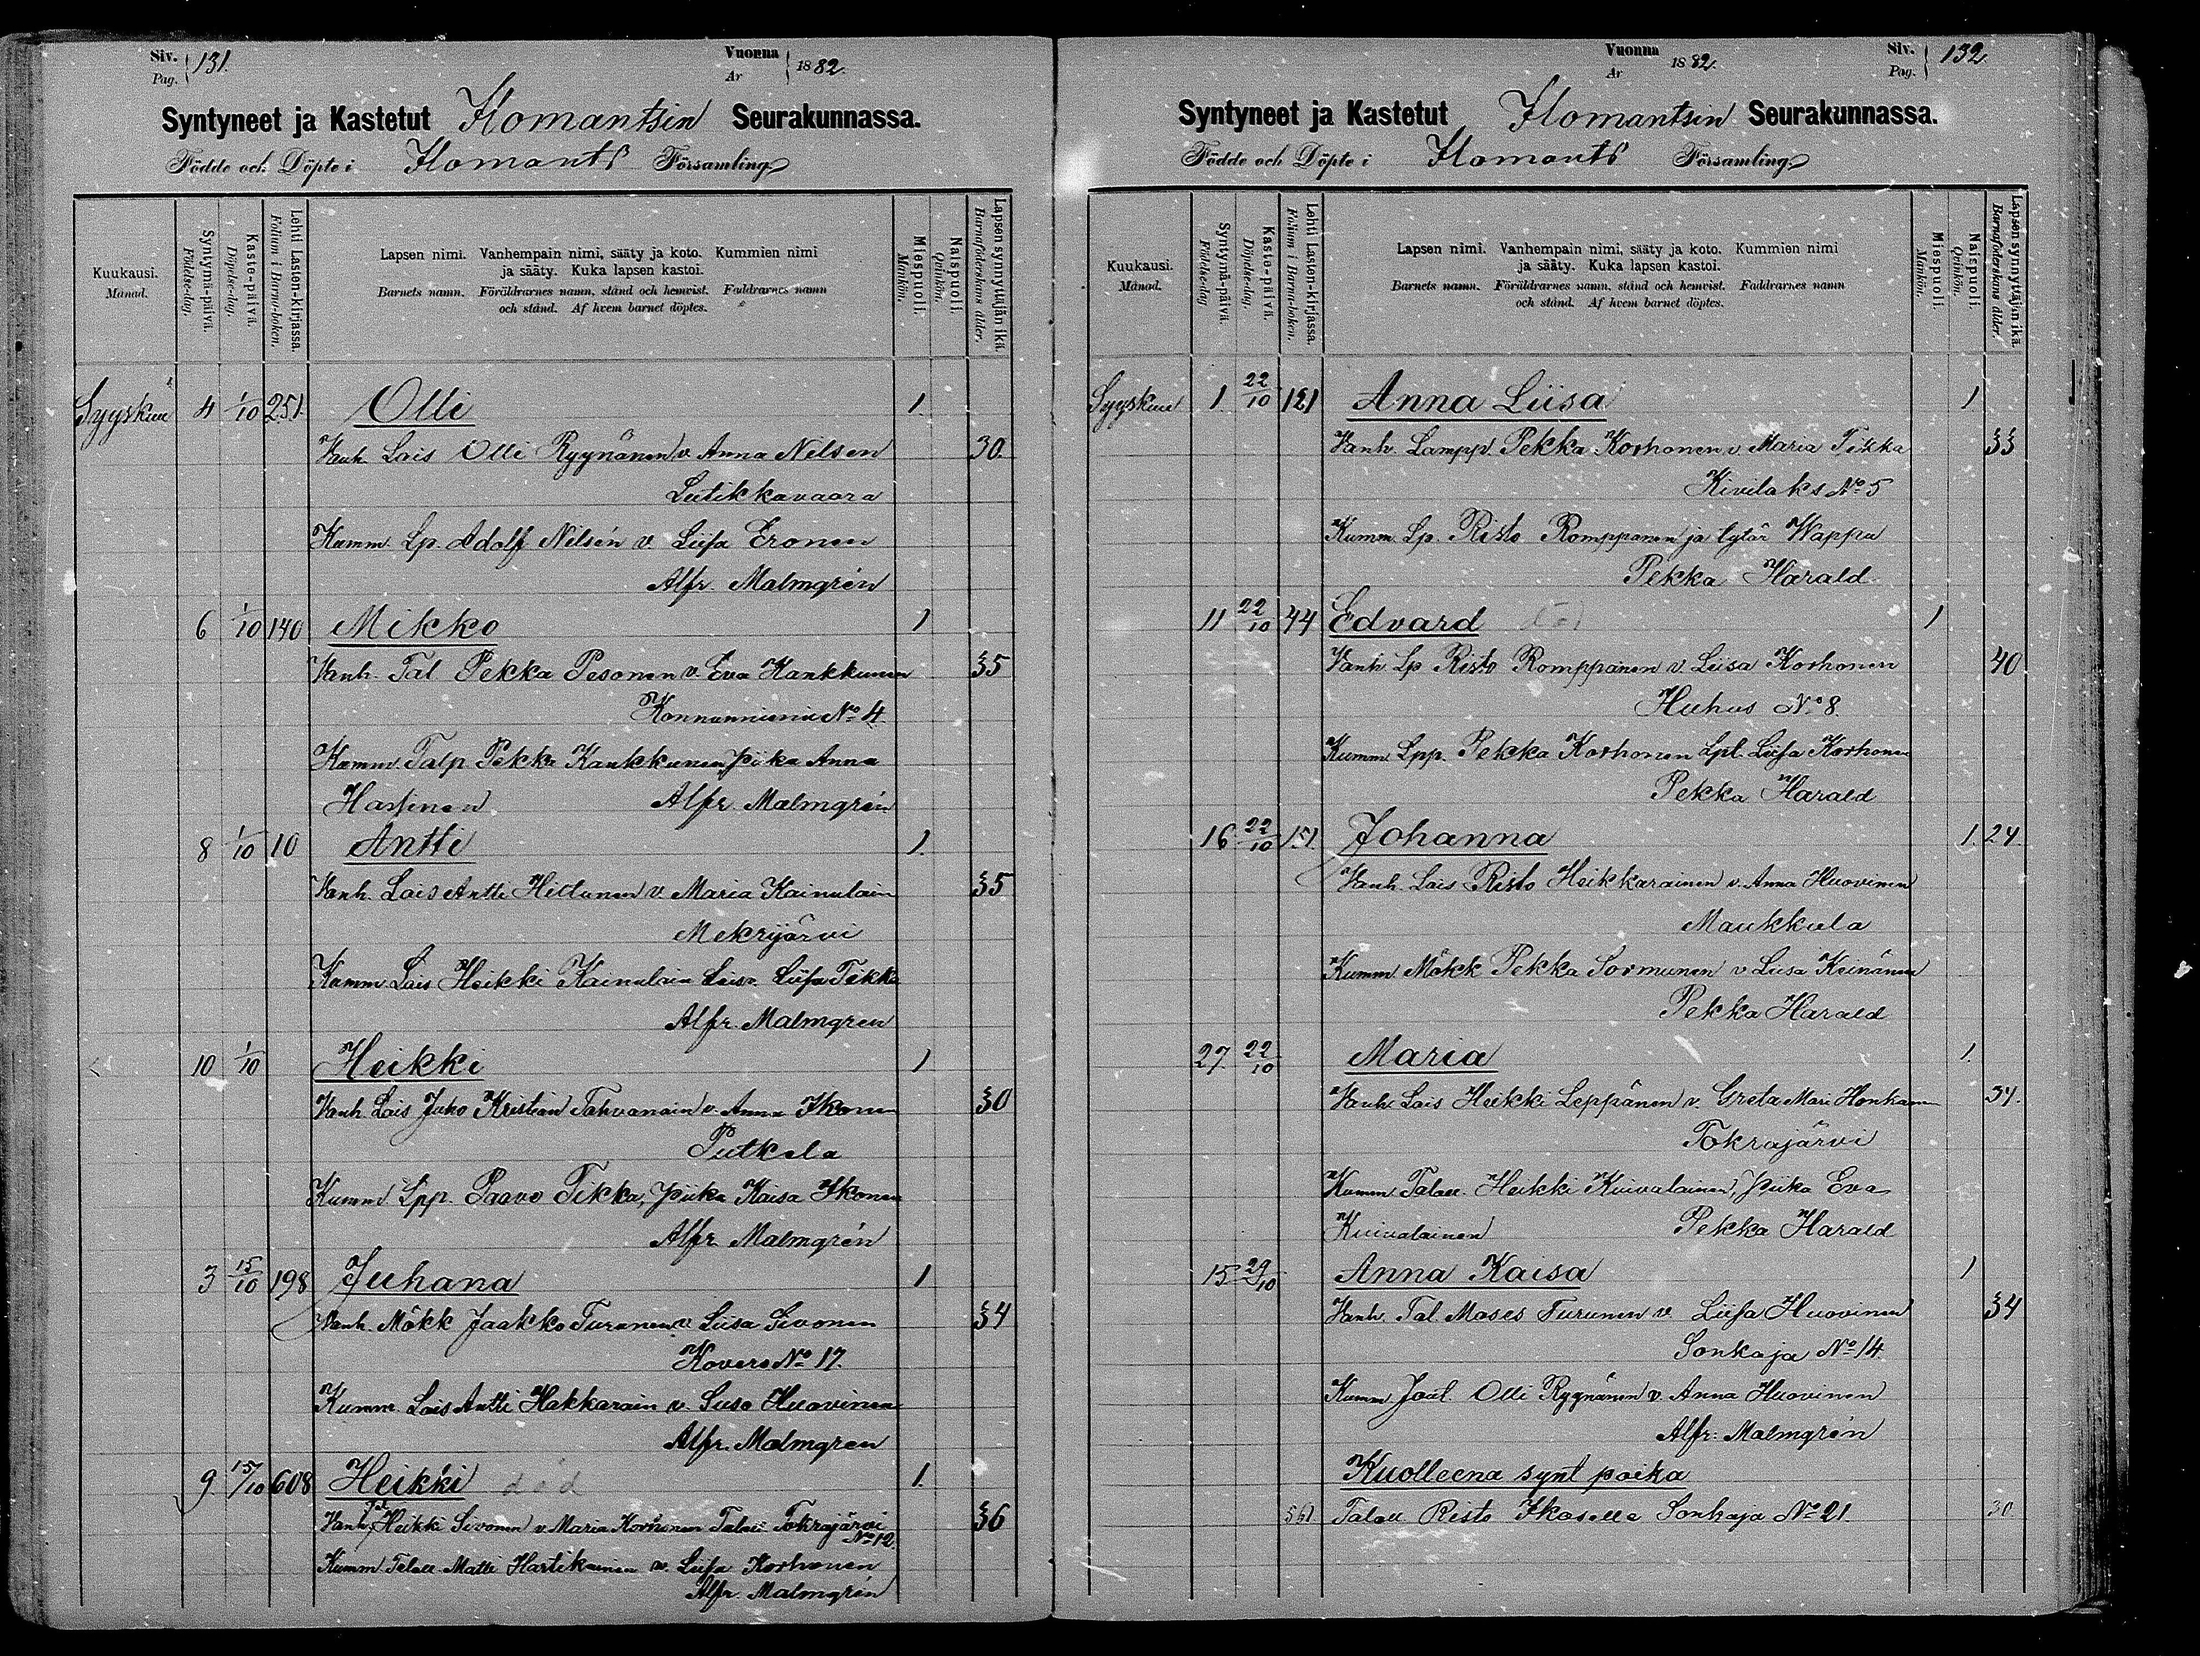 Siv. Pag. 131. Vuonna År 1882.
Syntyneet ja Kastetut Ilomantsin Seurakunnassa.
Födde och Döpte i Ilomants Församling
Kuukausi. Månad.
Syntymä-päivä. Födelse-dag.
Kaste-päivä. Döpelse-dag.
Lehti Lasten-kirjassa. Folium i Barna-boken.
Lapsen nimi. Vanhempain nimi, sääty ja koto. Kummien nimi
ja sääty. Kuka lapsen kastoi.
Barnets namn. Föräldrarnes namn, stånd och hemvist. Faddrarnes namn
och stånd. Af hvem barnet döptes.
Miespuoli. Mankön.
Naispuoli. Qvinkön.
Lapsen synnyttäjän ikä. Barnaföderskans ålder.
Syyskuu 4 1/10 251 Olli 1.
Vanh. Lois Olli Ryynänen v. Anna Nilsen 30.
Leitikkavaara
Kumm. Lp. Adolf Nilsén v. Liisa Eronen
Alfr. Malmgrén
6 1/10 140 Mikko 1
Vanh. Tal Pekka Pesonen v. Eva Kankkunen 35
Konnunniemi No 4
Kumm Talp Pekka Kankkunen, piika Anna
Hassinen Alfr Malmgrén
8 1/10 10 Antti 1.
Vanh. Lois Antti Hiltunen v. Maria Kainulain 35
Mekrijärvi
Kumm Lois Heikki Kainulain Loisv. Liisa Tikka
Alfr. Malmgren
10 1/10 Heikki 1
Vanh Lois Juho Kristian Tahvanain v. Anna Ikonen 30
Putkela
Kumm Lpp. Paavo Tikka, piika Kaisa Ikonen
Alfr Malmgrén
3 15/10 198 Juhana 1
Vanh. Mökk Jaakko Turunen v. Liisa Sivonen 34
Kovero No 17.
Kumm Lois Antti Hakkarain v. Liisa Huovinen
Alfr. Malmgren
9 15/10 608 Heikki död 1.
Vanh. Tal Heikki Sivonen v. Maria Korhonen Talaii Tokrajärvi 36
No 12.
Kumm Talall Matti Hartikainen v. Liisa Korhonen
Alfr. Malmgrén
Vuonna År 1882. Siv. Pag. 132.
Syntyneet ja Kastetut Ilomantsin Seurakunnassa.
Födde och Döpte i Ilomants Församling.
Kuukausi. Månad.
Syntymä-päivä. Födelse-dag
Kaste-päivä. Döpelse-dag.
Lehti Lasten-kirjassa. Folium i Barna-boken.
Lapsen nimi. Vanhempain nimi, sääty ja koto. Kummien nimi
ja sääty. Kuka lapsen kastoi.
Barnets namn. Föräldrarnes namn, stånd och hemvist. Faddrarnes namn
och stånd. Af hvem barnet döptes.
Miespuoli. Mankön.
Naispuoli. Qvinkön.
Lapsen synnyttäjän ikä. Barnaföderskans ålder.
Syyskuu 1. 22/10 121 Anna Liisa 1
Vanh. Lampp. Pekka Korhonen v. Maria Tikka 33
Kivilaks No 5
Kumm. Lp. Risto Romppanen ja tytär Wappu
Pekka Harald
11 22/10 44 Edvard 1
Vanh Lp Risto Romppanen v. Liisa Korhonen 40
Huhus No 8.
Kumm Lpp. Pekka Korhonen Lpl. Liisa Korhonen
Pekka Harald
16 22/10 151. Johanna 1. 24.
Vanh. Lois Risto Heikkarainen v. Anna Huovinen
Maukkula
Kumm Mökk Pekka Sormunen v Liisa Keinänen
Pekka Harald
27. 22/10 Maria 1.
Vanh. Lois Heikki Leppänen v. Greta Mari Honkanen 34.
Tokrajärvi
Kumm Talall. Heikki Kuivalainen, piika Eva
Kuivalainen Pekka Harald
15 29/10 Anna Kaisa 1
Vanh. Tal Moses Turunen v. Liisa Huovinen 34
Sonkaja No 14.
Kumm Jaal. Olli Ryynänen v. Anna Huovinen
Alfr. Malmgrén
Kuolleena synt poika
561 Talall Risto Ikoselle Sonkaja No 21. 30